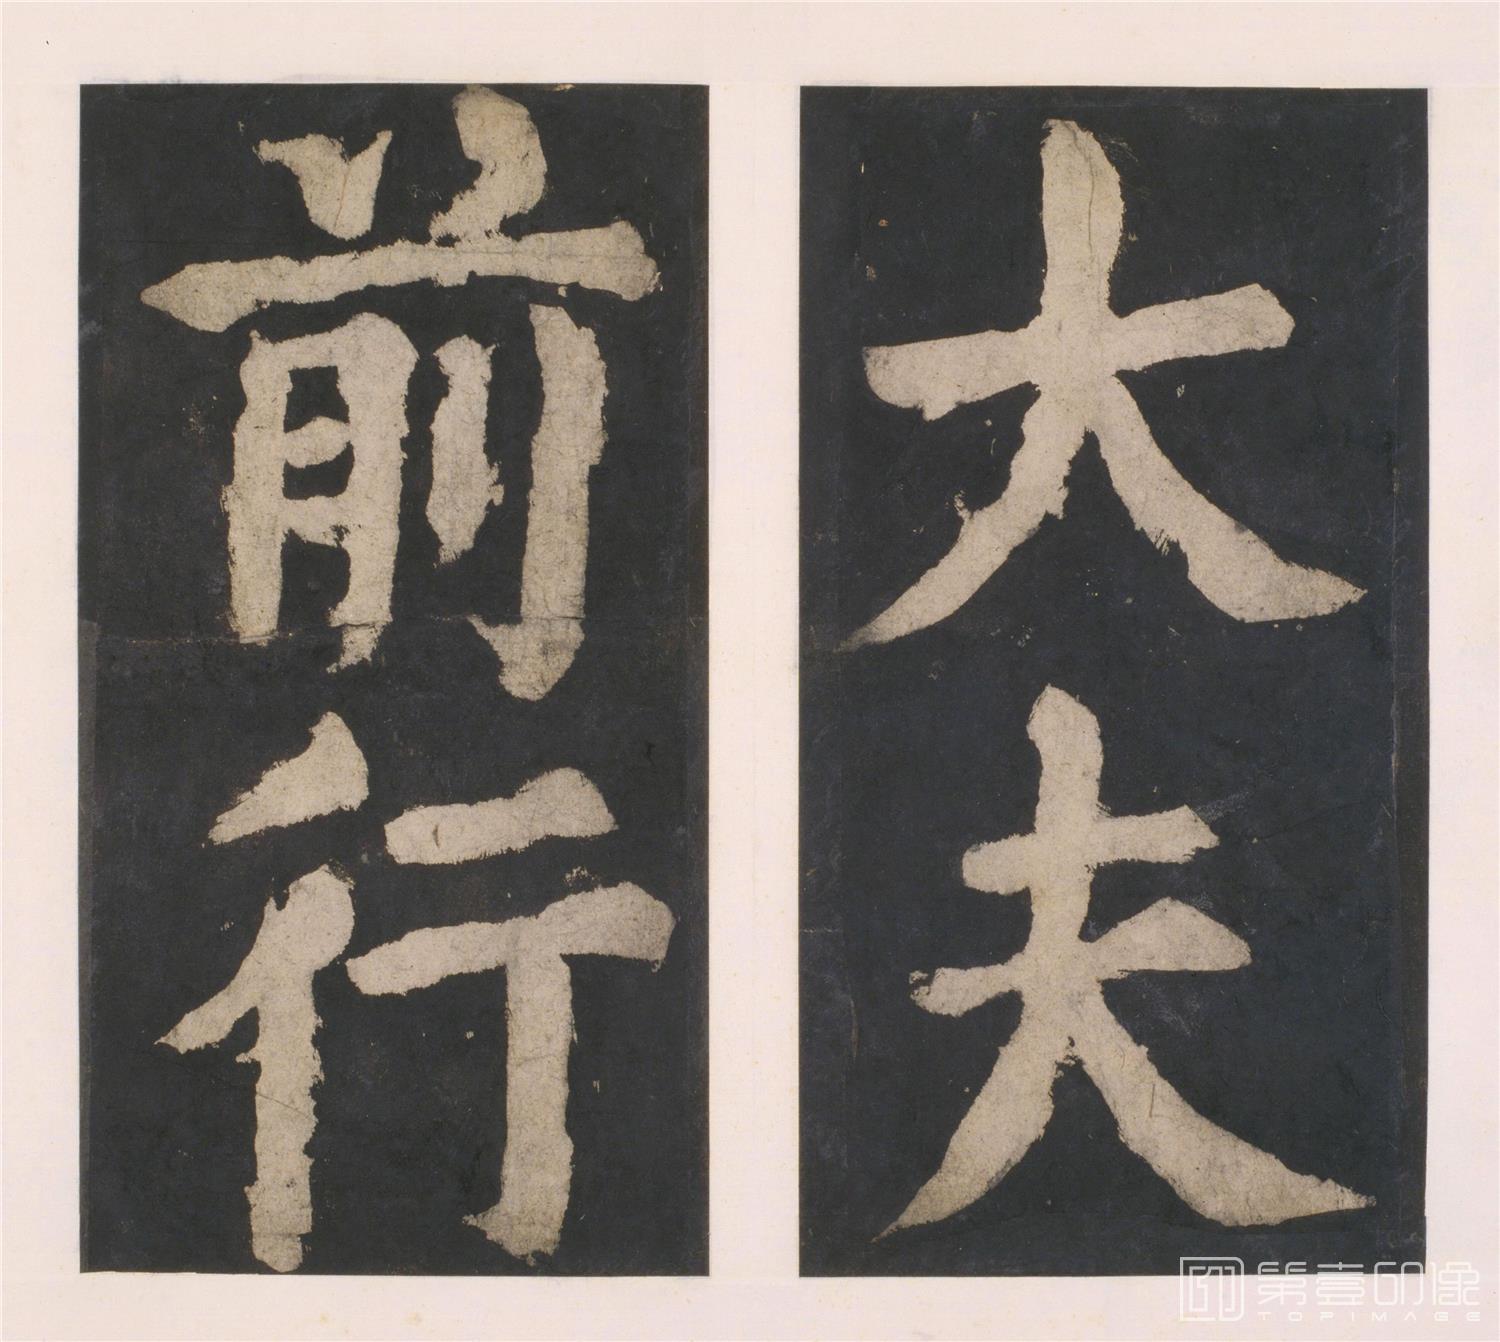 大夫
前行
第壹印像
TOPIMAGE